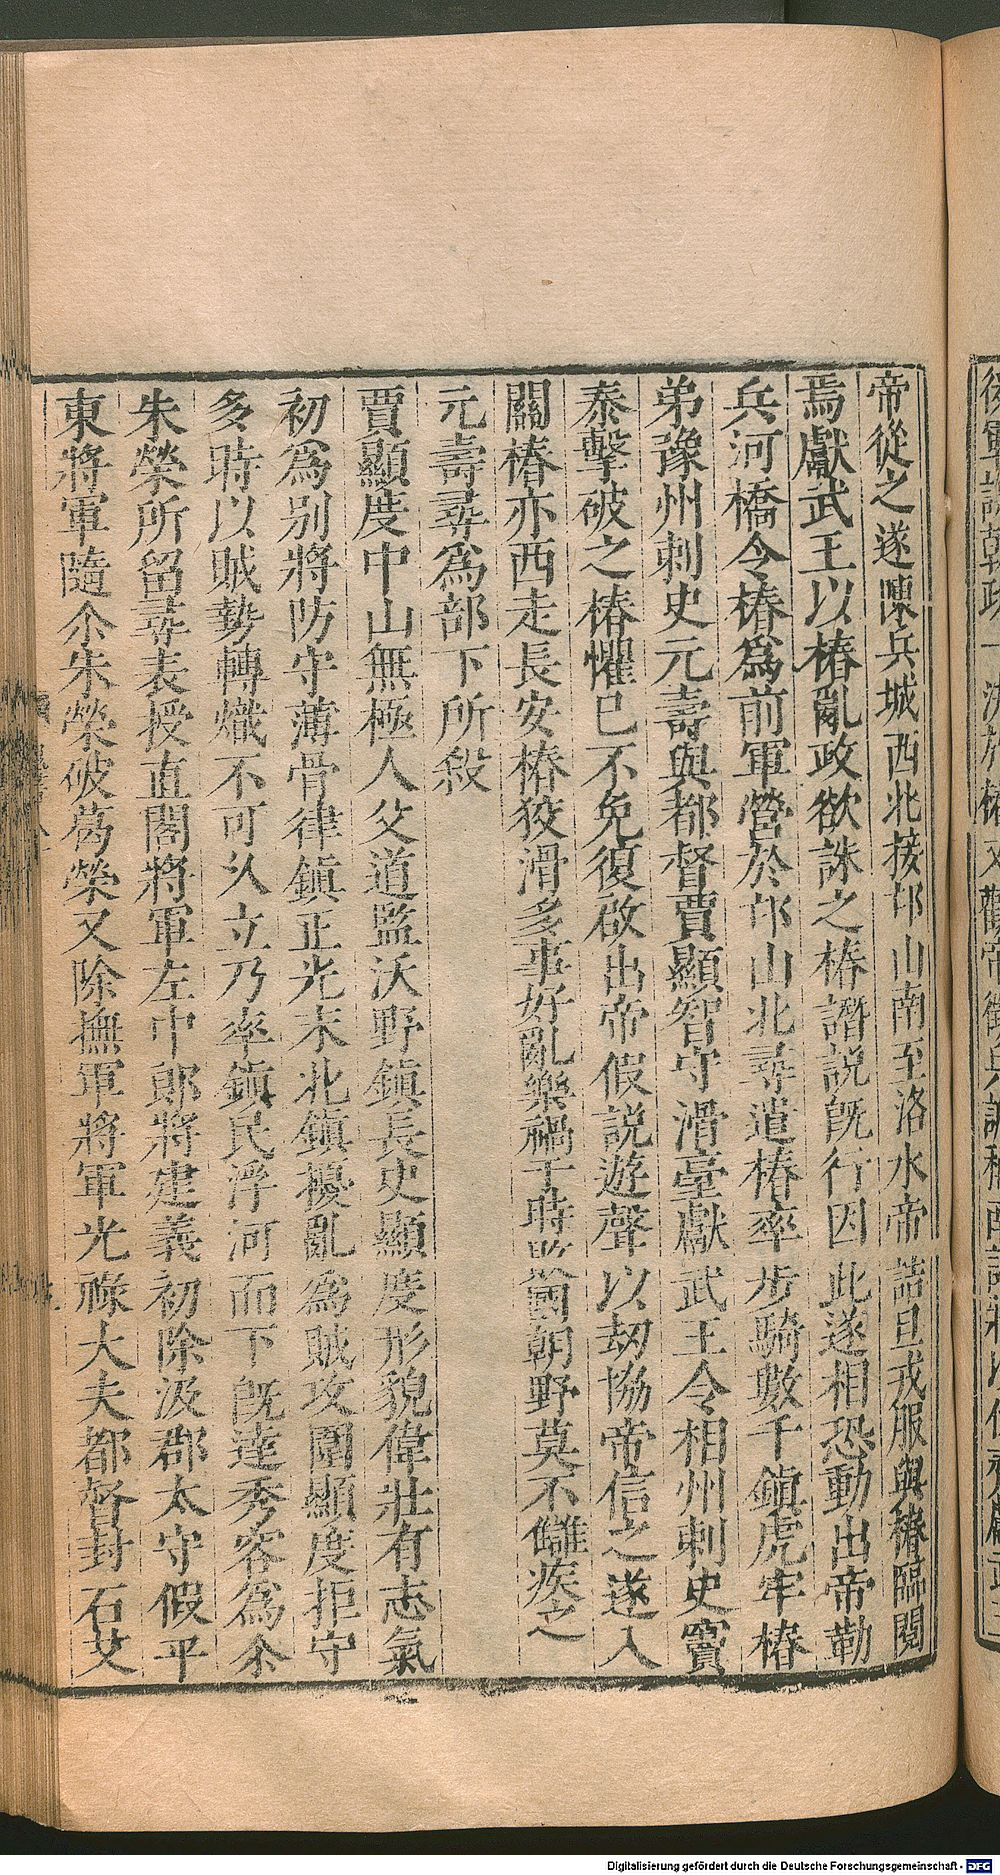 帝從之遂陳兵城西北接邙山南至洛水帝詰旦戎服與椿臨閱
焉獻武王以椿亂政欲誅之椿譖說旣行因此遂相恐動出帝勒
兵河橋令椿爲前軍營於邙山北尋遣椿率步騎數千鎭虎牢椿
弟豫州刺史元壽與都督賈顯智守滑臺獻武王令相州刺史竇
泰擊破之椿懼已不免復啟出帝假說遊聲以劫協帝信之遂入
關椿亦西走長安椿狡滑多事好亂樂禍于時敗國朝野莫不讎疾之
元壽尋爲部下所殺
賈顯度中山無極人父道監沃野鎭長史顯度形貌偉壯有志氣
初爲別將防守薄骨律鎭正光末北鎭擾亂爲賊攻圍顯度拒守
多時以賊勢轉熾不可久立乃率鎭民浮河而下旣達秀容爲尒
朱榮所留尋表授直閣將軍左中郎將建義初除汲郡太守假平
東將軍隨尒朱榮破葛榮又除撫軍將軍光祿大夫都督封石艾
Digitalisierung gefördert durch die Deutsche Forschungsgemeinschaft - DFG